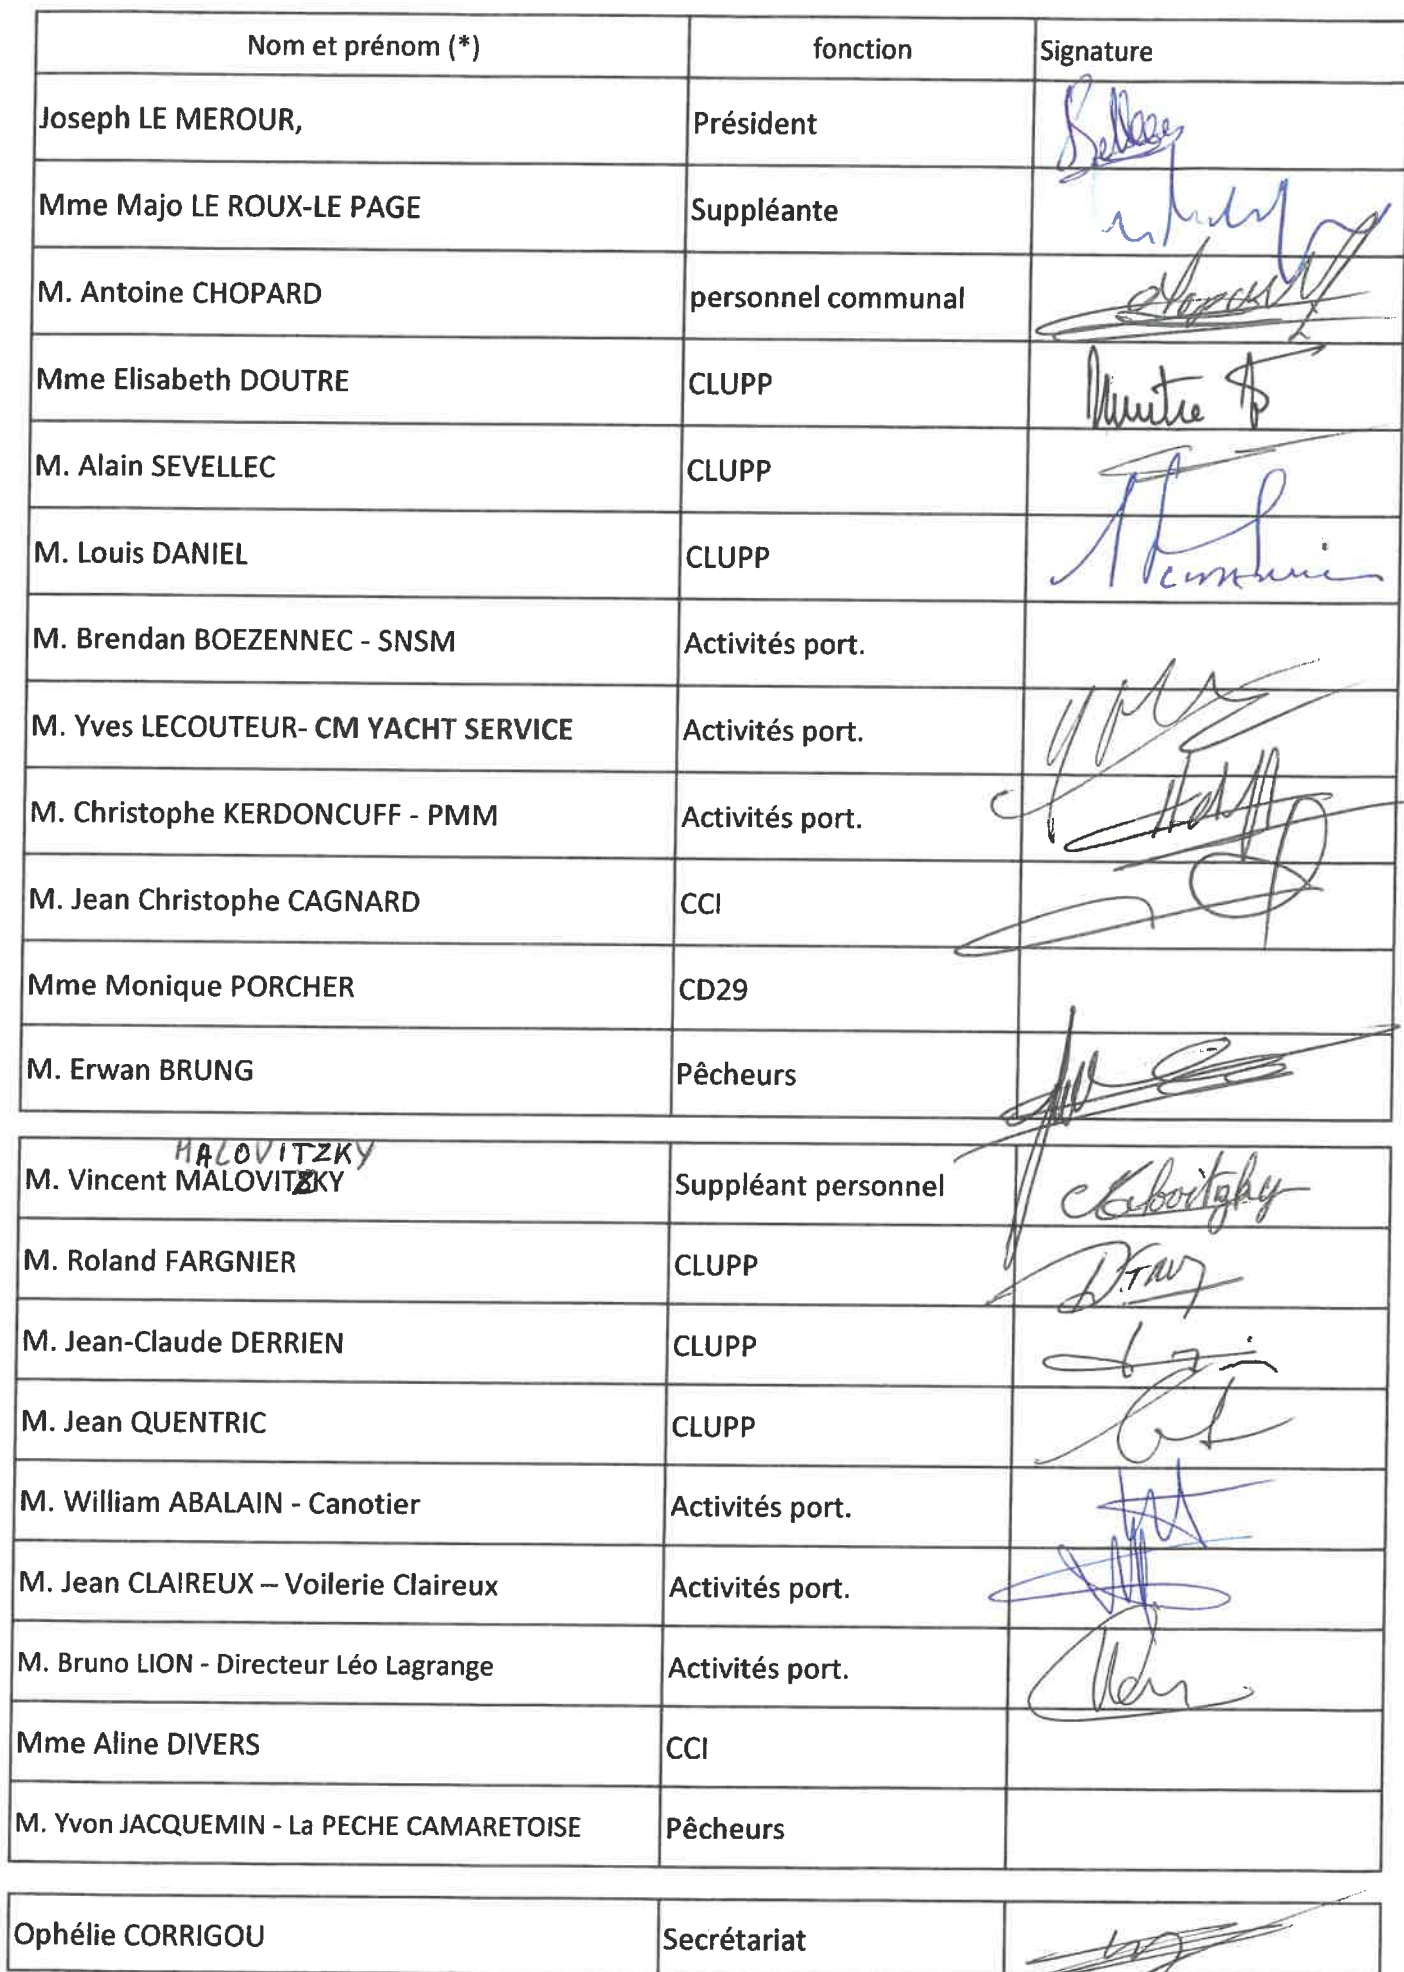 Nom et prénom (*) fonction Signature
Joseph LE MEROUR, Président
Mme Majo LE ROUX-LE PAGE Suppléante
M. Antoine CHOPARD personnel communal
Mme Elisabeth DOUTRE CLUPP
M. Alain SEVELLEC CLUPP
M. Louis DANIEL CLUPP
M. Brendan BOEZENNEC - SNSM Activités port.
M. Yves LECOUTEUR- CM YACHT SERVICE Activités port.
M. Christophe KERDONCUFF - PMM Activités port.
M. Jean Christophe CAGNARD CCI
Mme Monique PORCHER CD29
M. Erwan BRUNG Pêcheurs
MALOVITZKY
M. Vincent MALOVITZKY Suppléant personnel
M. Roland FARGNIER CLUPP
M. Jean-Claude DERRIEN CLUPP
M. Jean QUENTRIC CLUPP
M. William ABALAIN - Canotier Activités port.
M. Jean CLAIREUX – Voilerie Claireux Activités port.
M. Bruno LION - Directeur Léo Lagrange Activités port.
Mme Aline DIVERS CCI
M. Yvon JACQUEMIN - La PECHE CAMARETOISE Pêcheurs
Ophélie CORRIGOU Secrétariat